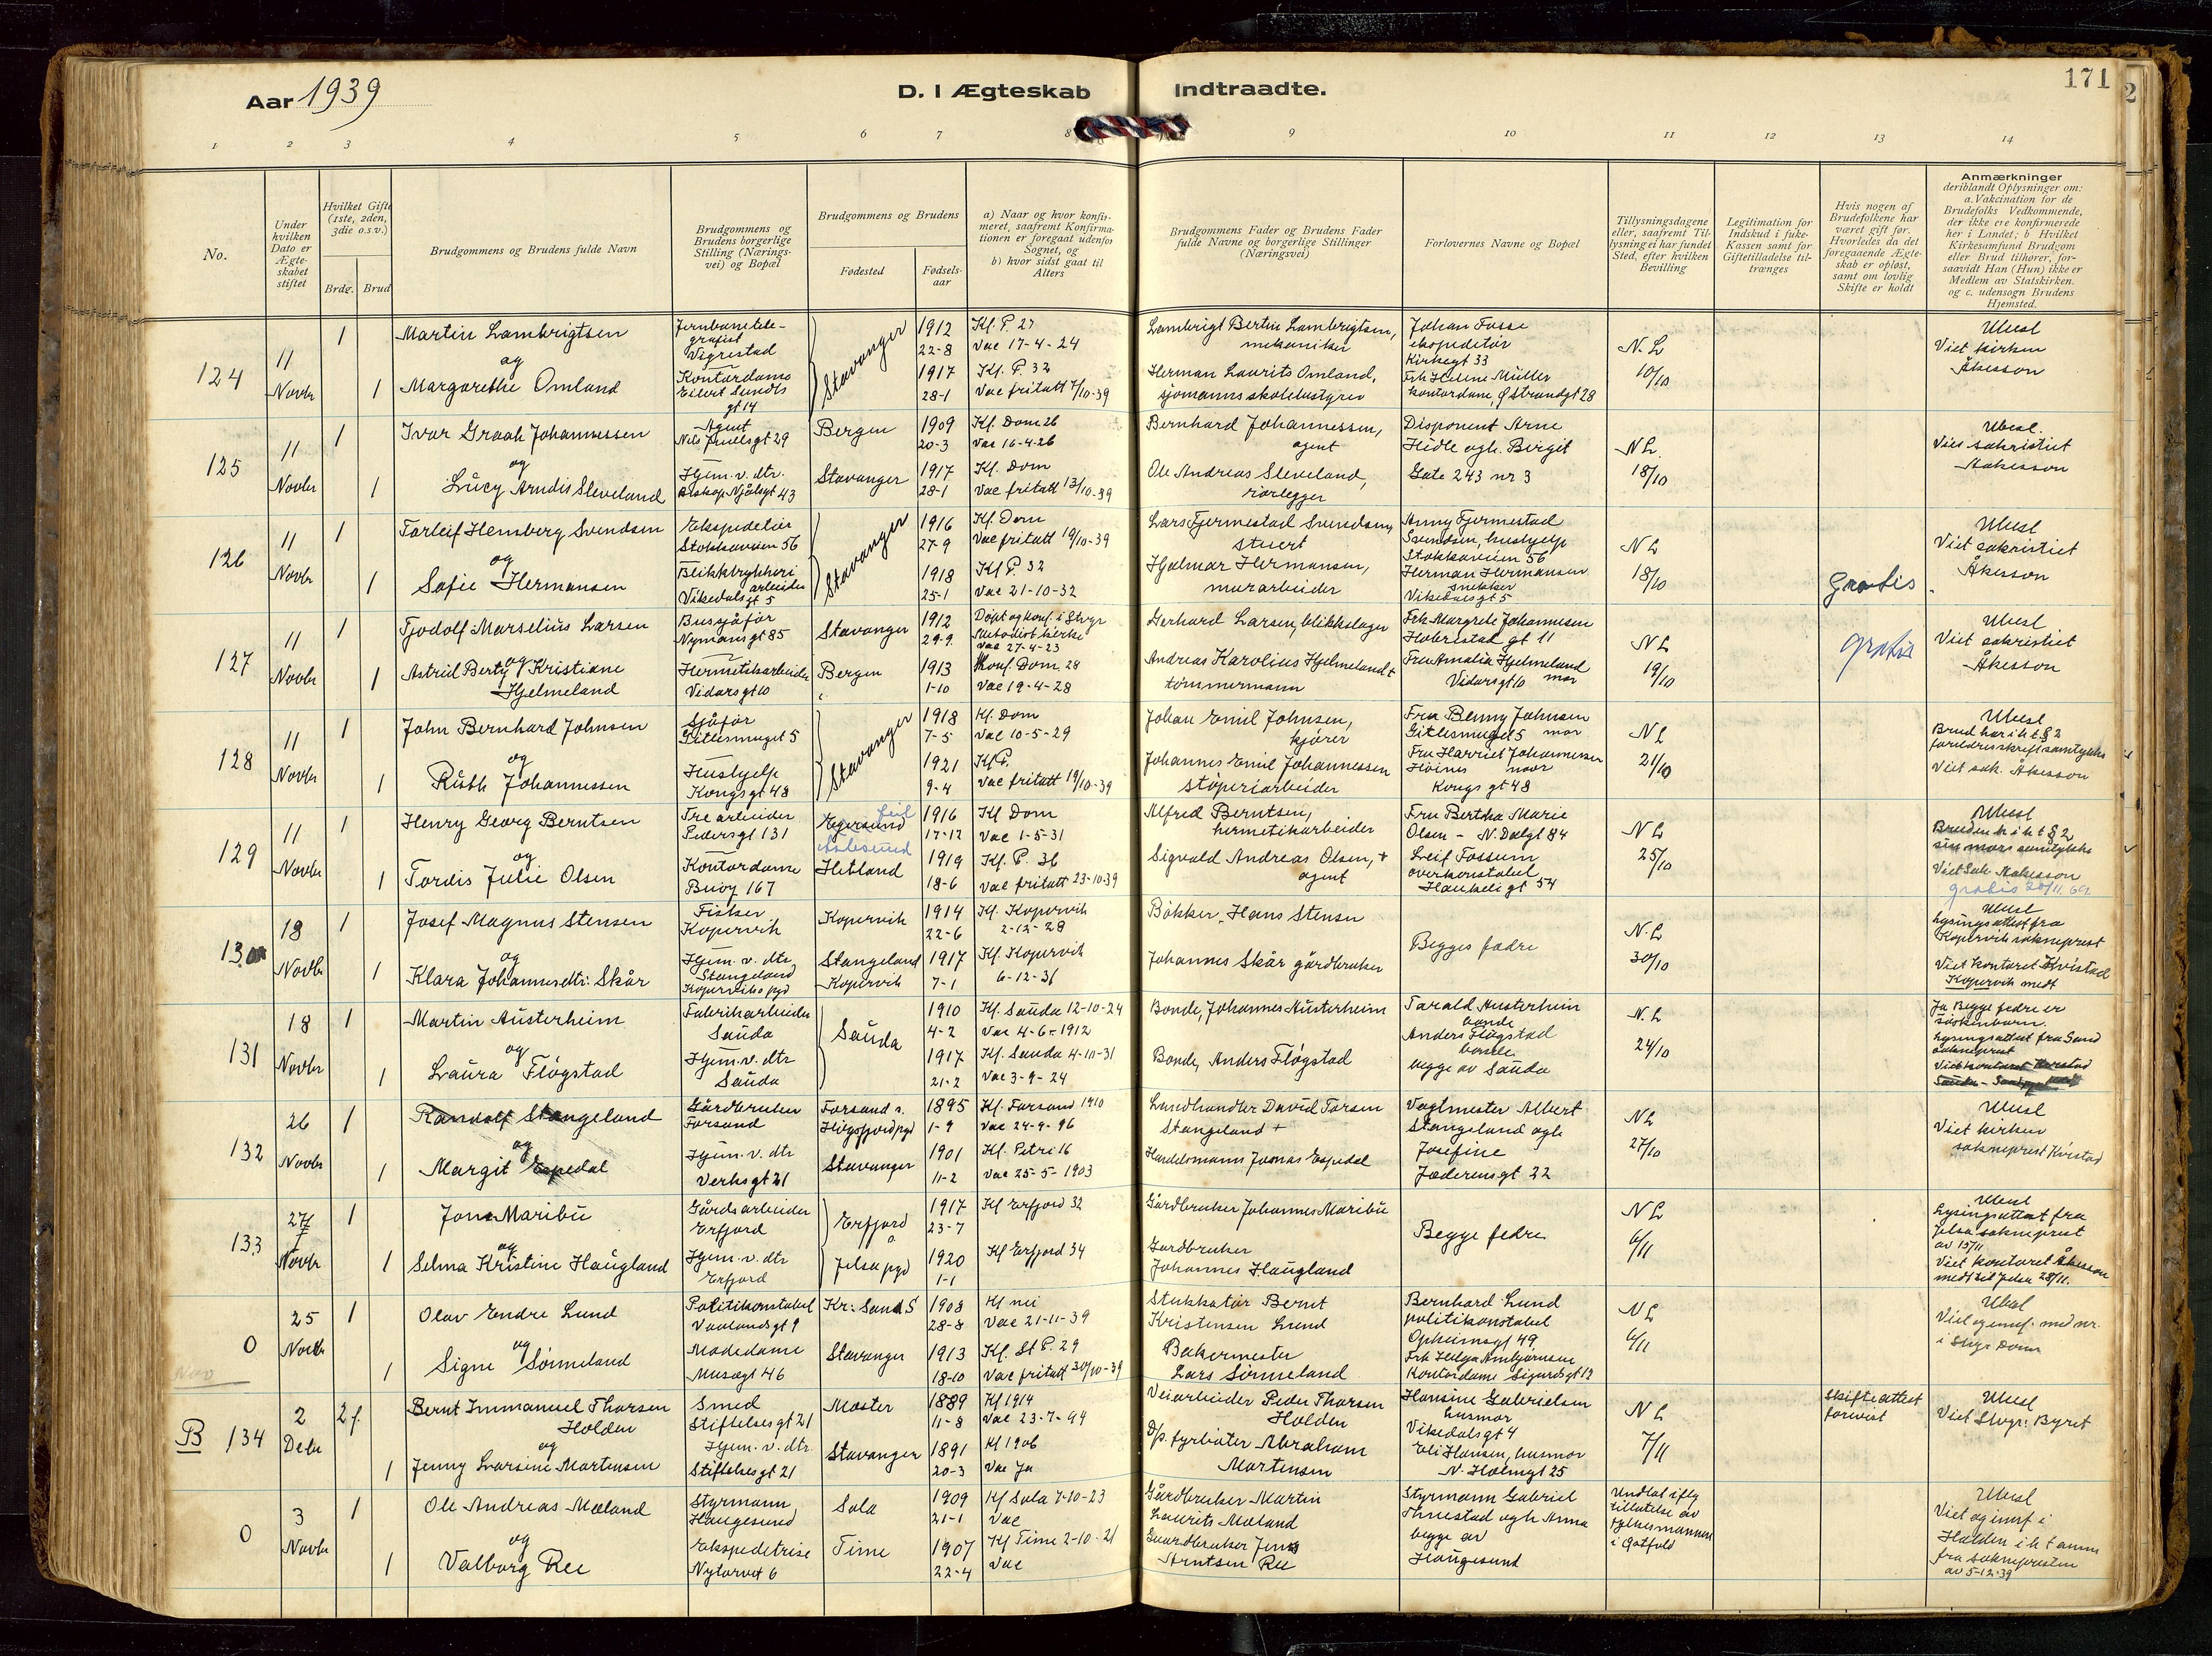 Aar 1939
D. I Ægteskab Indtraadte.
171
1 2 3 4 5 6 7 8 9 10 11 12 13 14
No.
Under hvilken Dato er Ægteskabet stiftet
Hvilket Gifte (1ste, 2den, 3die o.s.v.)
Brdg. Brud
Brudgommens og Brudens fulde Navn
Brudgommens og Brudens borgerlige Stilling (Næringsvei) og Bopæl
Brudgommens og Brudens
Fødested
Fødselsaar
a) Naar og hvor konfirmeret, saafremt Konfirmationen er foregaaet udenfor Sognet, og
b) hvor sidst gaat til Alters
Brudgommens Fader og Brudens Fader fulde Navne og borgerlige Stillinger (Næringsvei)
Forlovernes Navne og Bopæl
Tillysningsdagene eller, saafremt Tillysning ei har fundet Sted, efter hvilken Bevilling
Legitimation for Indskud i fuke-Kassen samt for Giftetilladelse tiltrænges
Hvis nogen af Brudefolkene har været gift før. Hvorledes da det foregaaende Ægteskab er opløst, samt om lovlig Skifte er holdt
Anmærkninger
deriblandt Oplysninger om: a. Vakcination for de Brudefolks Vedkommende, der ikke ere konfirmerede her i Landet; b Hvilket Kirkesamfund Brudgom eller Brud tilhører, forsaavidt Han (Hun) ikke er Medlem av Statskirken. og c. udensogn Brudens Hjemsted.
124
11 Novbr
1
Martin Lambrigtsen
og
1
Margarethe Omland
Jernbanetelegrafist
Vigrestad
Kontordame
Eilert Sundts gt 14
Stavanger
1912
22-8
1917
28-1
Kf. P. 27
Vac 17-4-24
Kf. P. 32
Vac fritatt 7/10-39
Lambrigt Bertin Lambrigtsen,
mekaniker
Herman Laurits Omland,
sjømannsskolebestyrer
Johan Fosse
ekspeditør
Kirkegt 33
Frk Helene Müller
kontordame, Ø Strandgt 28
N. L
10/10
Ubesl
Viet kirken
Åkesson
125
11 Novbr
1
Ivar Graah Johannessen
og
1
Lucy Arndis Sleveland
Agent
Nils Juelsgt 29
Hjem. v. dtr.
Biskop Njålsgt 43
Bergen
Stavanger
1909
20-3
1917
28-1
Kf. Dom 26
Vac 16-4-26
Kf. Dom
Vac fritatt 13/10-39
Bernhard Johannessen,
agent
Ole Andreas Sleveland,
rørlegger
Disponent Arne
Hidle ogh. Bergit
Gate 243 nr 3
N L.
18/10
Ubesl.
Viet sakristiet
Aakesson
126
11 Novbr
1
Torleif Hensberg Svendsen
og
1
Sofie Hermansen
Ekspeditør
Stokkaveien 56
Blikktrykkeri
arbeider
Vikedalsgt 5
Stavanger
1916
27-9
1918
25-1
Kf. Dom
Vac fritatt 19/10-39
Kf P. 32
Vac 21-10-32
Lars Fjermestad Svendsen,
stuert
Hjalmar Hermansen,
murarbeider
Anny Fjermestad
Svendsen, hushjelp
Stokkaveien 56
Herman Hermansen
snekker
Vikedalsgt 5
N L
18/10
Gratis
Ubesl
Viet sakristiet
Åkesson
127
11 Novbr
1
Tjodolf Marselius Larsen
og
1
Astrid Berty Kristiane
Hjelmeland
Bussjåfør
Nymansgt 85
Hermetikarbeider
Vidarsgt 10
Stavanger
Bergen
1912
29-9
1913
1-10
Døpt og konf. i Stvgr
Metodistkirke
Vac 27-4-23
Konf. Dom 28
Vac 19-4-28
Gerhard Larsen, blikkslager
Andreas Karolius Hjelmeland +
tømmermann
Frk Margrete Johannesen
Hobrestak gt 11
Fru Amalia Hjelmeland
Vidarsgt 10 mor
N L
19/10
gratis
Ubesl
Viet sakristiet
Åkesson
128
11 Novbr
1
John Bernhard Johnsen
og
1
Ruth Johannessen
Sjåfør
Gitlesmuget 5
Hushjelp
Kongsgt 48
Stavanger
1918
7-5
1921
9-4
Kf. Dom
Vac 10-5-29
Kf P.
Vac fritatt 19/10-39
Johan Emil Johnsen,
kjører
Johannes Emil Johannessen
støperiarbeider
Fru Benny Johnsen
Gitlesmuget 5 mor
Fru Harriet Johannessen
Høines mor
Kongsgt 48
N L
21/10
Ubesl
Brud har i h t § 2
foreldres skriftl samtykke
Viet sak. Åkesson
129
11 Novbr
1
Henry Georg Berntsen
og
1
Tordis Julie Olsen
Trearbeider
Pedersgt 131
Kontordame
Buøy 167
Egersund feil
Aalesund
Hetland
1916
17-12
1919
18-6
Kf Dom
Vac 1-5-31
Kf. P. 36
Vac fritatt 23-10-39
Alfred Berntsen,
hermetikarbeider
Sigvald Andreas Olsen, +
agent
Fru Bertha Marie
Olsen - N. Dalgt 84
Leif Fossum
overkonstabel
Haukeligt 54
N L
25/10
Ubesl
Bruden h i h t § 2
sin mors samtykke
Viet Sak Aakesson
gratis 20/11. 69.
130
18 Novbr
1
Josef Magnus Stensen
og
1
Klara Johannesdtr. Skår
Fisker
Kopervik
Hjem. v. dtr
Stangeland
Koperviks pgd
Kopervik
Stangeland
Kopervik
1914
22-6
1917
7-1
Kf. Kopervik
2-12-28
Kf. Kopervik
6-12-31
Bøkker, Hans Stensen
Johannes Skår gårdbruker
Begges fedre
N. L
30/10
Ubesl
Lysingsattest fra
Kopervik sokneprest
Viet kontoret Kvistad
Kopervik medt
131
18 Novbr
1
Martin Austerheim
og
1
Laura Fløgstad
Fabrikarbeider
Sauda
Hjem. v. dtr
Sauda
Sauda
1910
4-2
1917
21-2
Kf. Sauda 12-10-24
Vac 4-6-1912
Kf. Sauda 4-10-31
Vac 3-9-24
Bonde, Johannes Austerheim
Bonde, Anders Fløgstad
Tarald Austerheim
bonde
Anders Fløgstad
bonde
begge av Sauda
N. L
24/10
Ja Begge fedre er
søskenbarn.
Lysingsattest fra Sand
sokneprest
Viet kontoret Kvistad
132
26 Novbr
1
Randolf Stangeland
og
1
Margit Espedal
Gårdbruker
Forsand
Hjem. v. dtr
Verksgt 21
Forsand s.
Høgsfjord pgd
Stavanger
1895
1-9
1901
11-2
Kf. Forsand 1910
Vac 24-9-96
Kf. Petri 16
Vac 25-5-1903
Landhandler David Torsen
Stangeland +
Handelsmann Jonas Espedal
Vagtmester Albert
Stangeland ogh
Josefine
Jæderensgt 22
N L
27/10
Ubesl
Viet kirken
sokneprest Kvistad
133
27 Novbr
1
Jone Maribu
og
1
Selma Kristine Haugland
Gårdsarbeider
Erfjord
Hjem. v. dtr
Erfjord
Erfjord
Jelsa pgd
1917
23-7
1920
1-1
Kf Erfjord 32
Kf Erfjord 34
Gårdbruker Johannes Maribu
Gardbruker
Johannes Haugland
Begge fedre
N L
6/11
Ubesl
Lysingsattest fra
Jelsa sokneprest
av 15/11
Viet kontoret Åkesson
medt til Jelsa 28/11.
0
25 Novbr
1
Olav Endre Lund
og
1
Signe Sørmeland
Politikonstabel
Vaalandsgt 9
Motedame
Musegt 46
Kr. Sand S
Stavanger
1908
28-8
1913
18-10
Kf nei
Vac 21-11-39
Kf. St P. 29
Vac fritatt 30/10-39
Stukkatør Bernt
Kristensen Lund
Bakermester
Lars Sørmeland
Bernhard Lund
politikonstabel
Opheimsgt 49
Frk Helga Ambjørnsen
Kontordame Sigurdsgt 12
N L
6/11
Ubesl
Viet og innf. med nr.
i Stvgr Dom
B 134
2 Debr
2 f.
Bernt Immanuel Thorsen
Holden
og
1
Jenny Larsine Martensen
Smed
Stiftelsesgt 21
Hjem. v. dtr.
Stiftelsesgt 21
Moster
Stavanger
1889
11-8
1891
20-3
Kf 1914
Vac 23-7-94
Kf 1906
Vac Ja
Veiarbeider Peder Thorsen
Holden
D/p. fyrbøter Abraham
Martensen
Hansine Gabrielsen
husmor
Vikedalsgt 4
Eli Hansen, husmor
N. Holmgt 25
N L
7/11
Skifteattest
forevist
Ubesl
Viet Stvgr. Byret
0
3 Novbr
1
Ole Andreas Mæland
og
1
Valborg Ree
Styrmann
Haugesund
Ekspeditrise
Nytorvet 6
Sola
Time
1909
21-1
1907
22-4
Kf Sola 7-10-23
Vac
Kf Time 2-10-21
Vac
Gårdbruker Martin
Laurits Mæland
Gaardbruker Jens
Arntsen Ree
Styrmann Gabriel
Thuestad ogh Anna
begge av
Haugesund
Undlat iflg
tillatelse av
fylkesmannen
i Østfold
Ubesl
Viet og innf i
Halden i h t anm
fra soknepresten
av 5-12-39